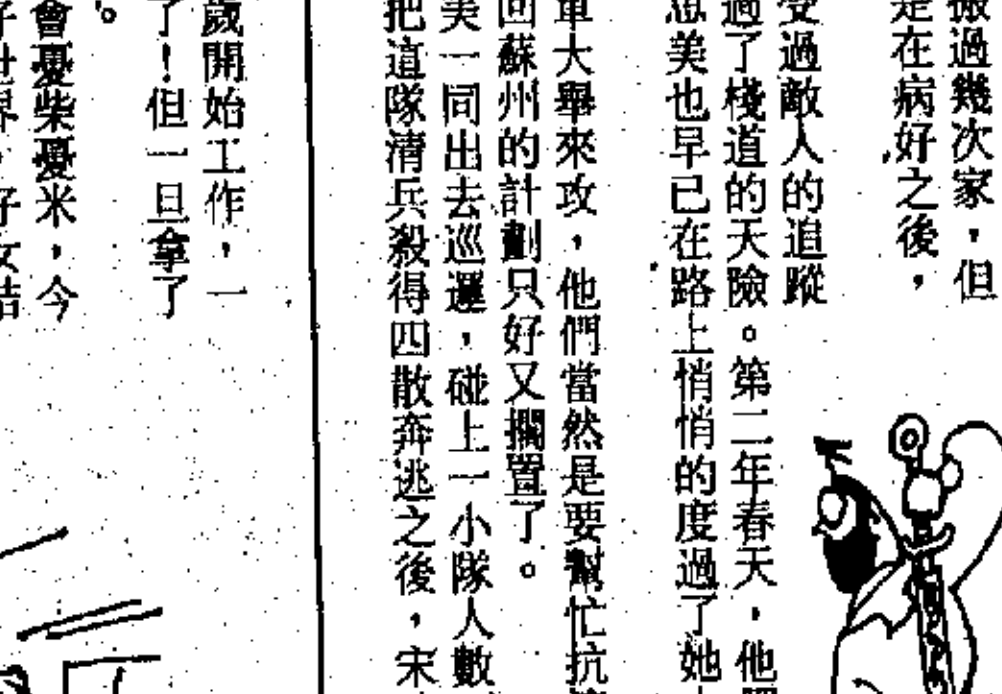 搬過幾次家，但
是在病好之後，
受過敵人的追蹤
過了棧道的天險。第二年春天，他
思美也早已在路上悄悄的度過了她
軍大舉來攻，他們當然是要幫忙抗
回蘇州的計劃只好又擱置了。
美一同出去巡邏，碰上一小隊人數
把這隊清兵殺得四散奔逃之後，宋
歲開始工作，一
了！但一旦拿了
。
會憂柴憂米，今
好世界，好女結